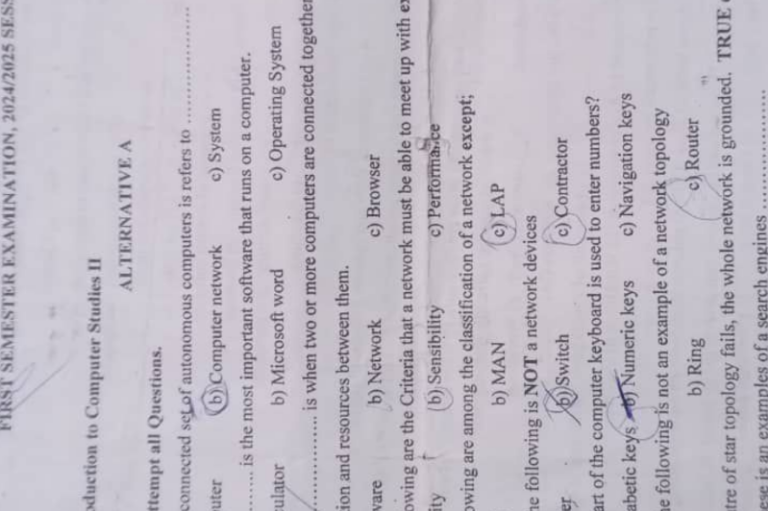 FIRST SEMESTER EXAMINATION, 2024/2025 SESS
oduction to Computer Studies II
ALTERNATIVE A
ttempt all Questions.
connected set of autonomous computers is refers to ....................
uter b) Computer network c) System
........ is the most important software that runs on a computer.
culator b) Microsoft word c) Operating System
................ is when two or more computers are connected together
ion and resources between them.
ware b) Network c) Browser
owing are the Criteria that a network must be able to meet up with ex
ity b) Sensibility c) Performance
owing are among the classification of a network except;
b) MAN c) LAP
he following is NOT a network devices
er b) Switch c) Contractor
art of the computer keyboard is used to enter numbers?
abetic keys b) Numeric keys c) Navigation keys
he following is not an example of a network topology
b) Ring c) Router
ntre of star topology fails, the whole network is grounded. TRUE
ese is an examples of a search engines ....................